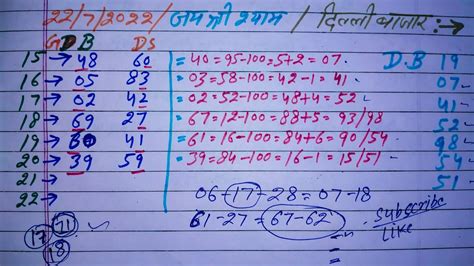 22/7/2022/ जय श्री श्याम / दिल्ली बाजार :→
G D B DS
15 → 48 60 = 40 = 95-100 = 5+2 = 07. D.B 19
16 → 05 83 = 03 = 58-100 = 42-1 = 41 07
17 → 02 42 = 02 = 52-100 = 48+4 = 52 41
18 → 69 27 = 67 = 12-100 = 88+5 = 93/98 52
19 → 41 = 61 = 16-100 = 84+6 = 90/54 98
20 → 39 59 = 39 = 84-100 = 16-1 = 15/51 54
21 → 51
22 →
06-17-28 = 07-18
61-27 = 67-62
17 71 18
Subscribe
Like